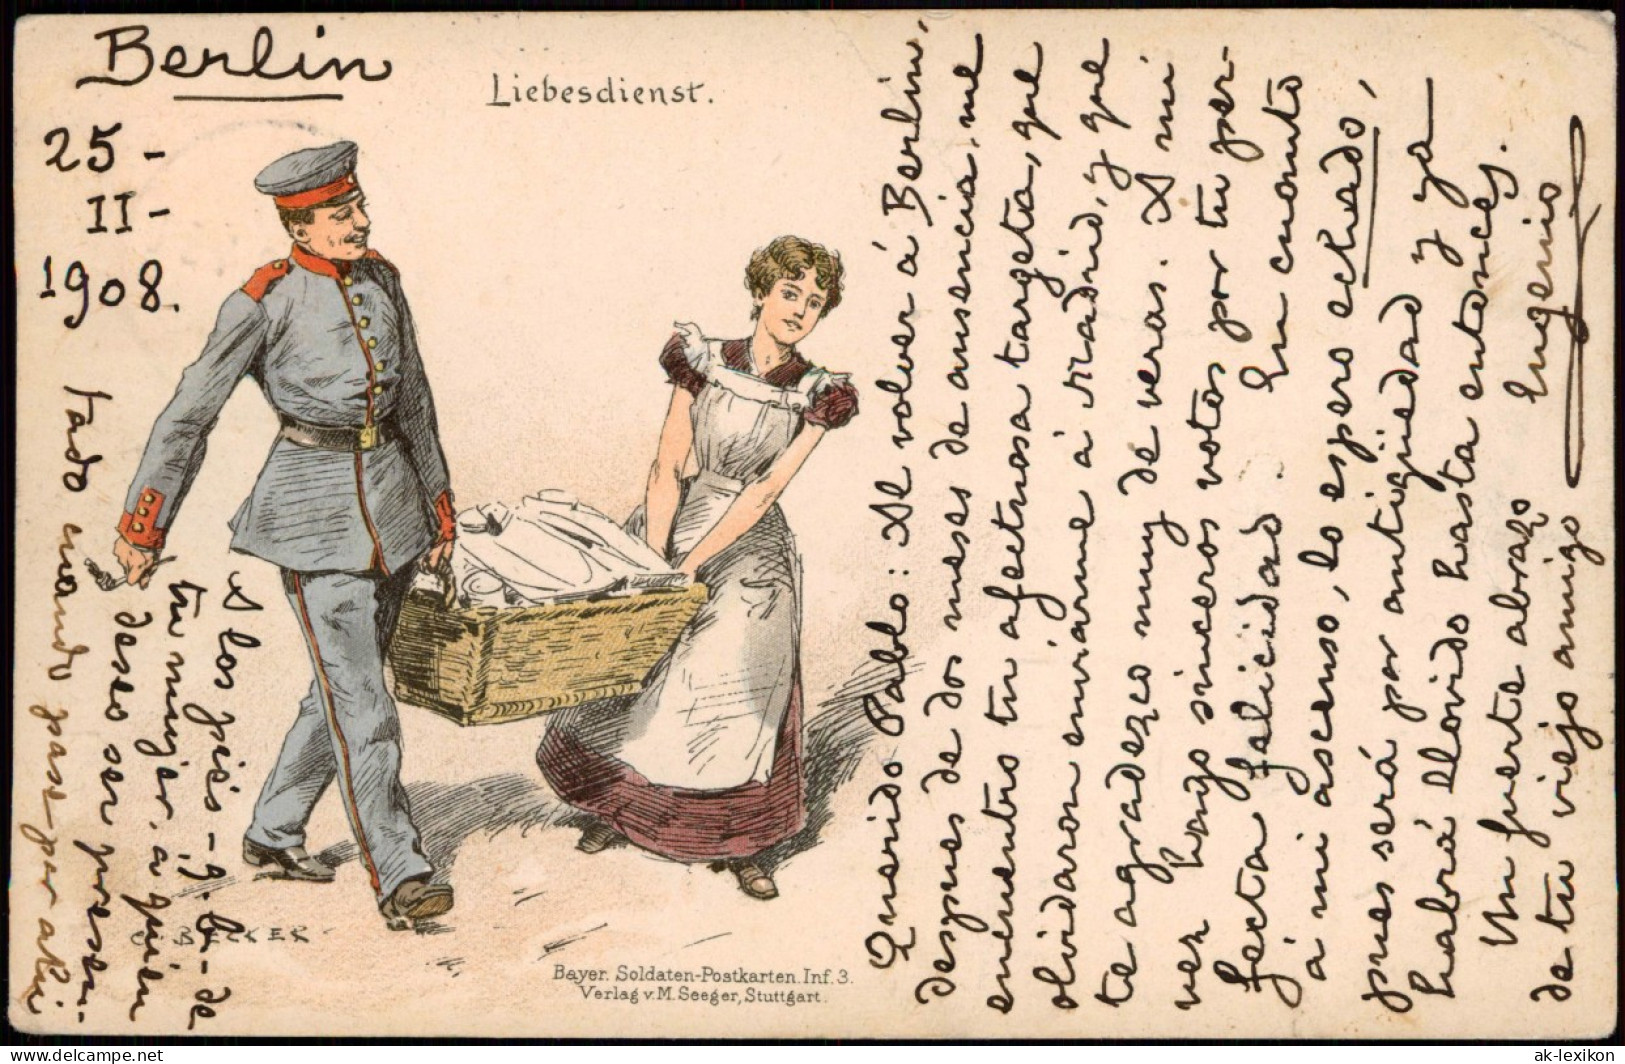 Berlin
25-
II-
1908.
Liebesdienst.
Querido Pablo: Al volver á Berlin,
despues de dos meses de ausencia, me
encuentro tu afectuosa targeta, que
olvidaron enviarme á Madrid, y que
te agradezco muy de veras. A mi
vez hago sinceros votos por tu per-
fecta felicidad. En cuanto
á mi ascenso, lo espero echado,
pues será por antigüedad y ya
habrá llovido hasta entonces.
Un fuerte abrazo
de tu viejo amigo Eugenio
A los piés - q. b. - de
tu mujer, a quien
deseo ser presen-
tado cuando pase por aki
C. BECKER
Bayer. Soldaten-Postkarten. Inf. 3.
Verlag v. M. Seeger, Stuttgart.
https://www.delcampe.net
ak-lexikon